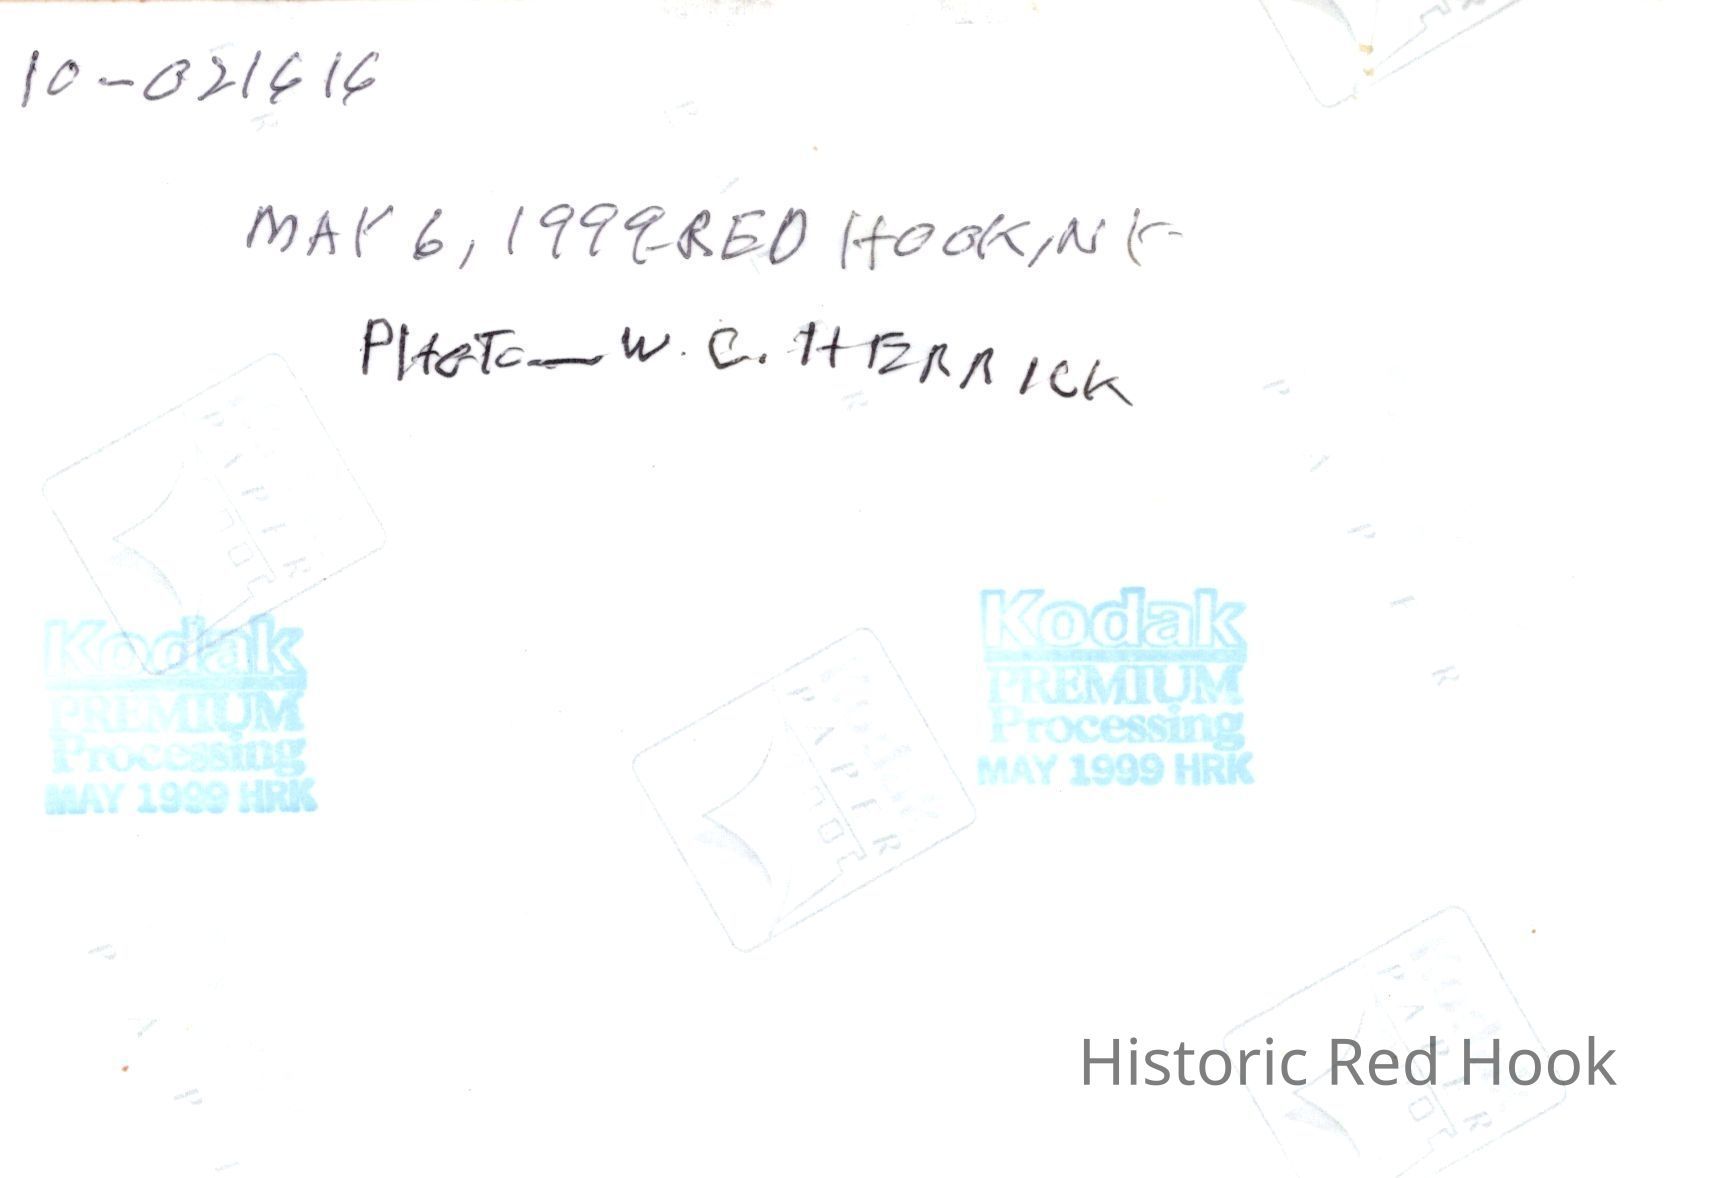 10-021616
MAY 6, 1999-RED HOOK, NY-
PHOTO — W. C. HERRICK
Kodak
PREMIUM
Processing
MAY 1999 HRK
Kodak
PREMIUM
Processing
MAY 1999 HRK
PAPIER
PAPIER
PAPIER
Historic Red Hook